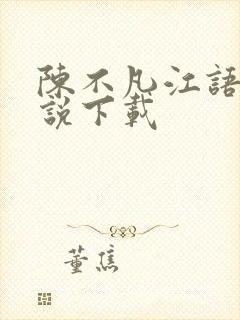 陳不凡江語
說下載
董焦